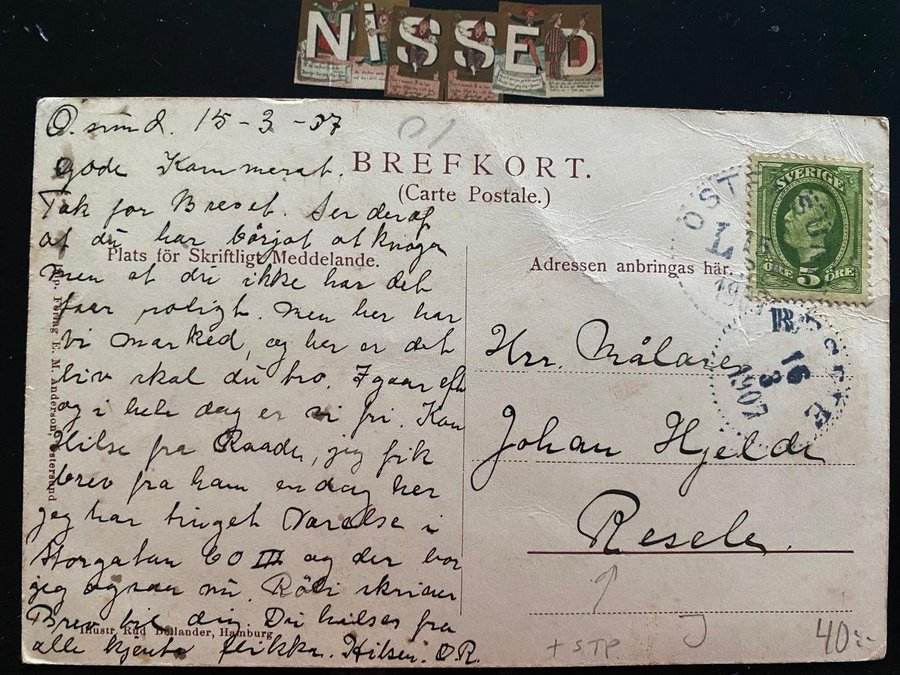 NiSSED
Ö.sund. 15-3-07
BREFKORT.
(Carte Postale.)
gode Kammerat.
Tak for Brevet. Ser deraf
at du har börjat at knoga
Plats för Skriftligt Meddelande.
men at du ikke har det
saa roligt. men her har
vi marked, og her er det
liv skal du tro. I gaar eft
og i hele dag er vi fri. Kan
Hilse fra Raade, jeg fik
brev fra ham en dag her
jeg har tinget Værelse i
Storgatan 60 III og der bor
jeg ogsaa nu. skriver
Brev til dig. Du hilses fra
alle kjente flikka. Hilsen. O.R.
Förlag E. M. Anderson Östersund
Illustr. Rud Bülander, Hamburg
Adressen anbringas här.
SVERIGE
5
ÖRE ÖRE
ÖST
L
15
3
R
16
3
1907
Hrr. Målaren
Johan Hjelde
Resele.
+ STP
40:-